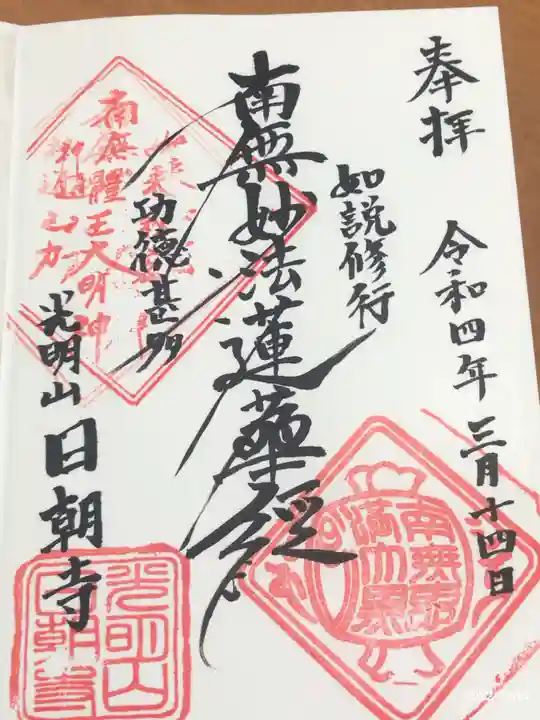 奉拝
令和四年三月十四日
如説修行
南無妙法蓮華経
功徳甚多
南無體王大明神
光明山日朝寺
光明山
日朝寺